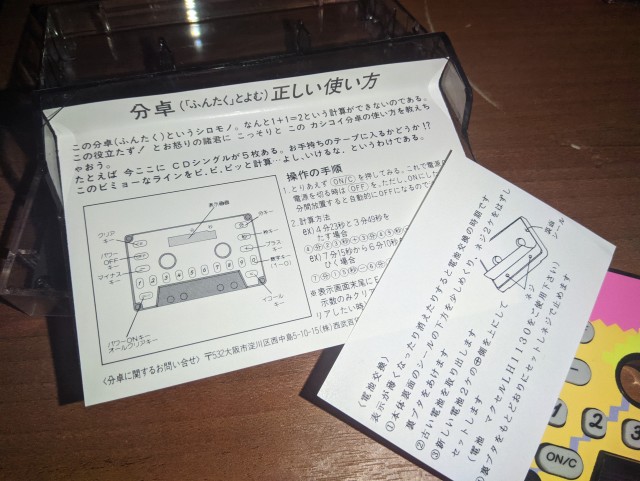 分卓(「ふんたく」とよむ)正しい使い方
この分卓(ふんたく)というシロモノ。なんと1+1=2という計算ができないのである。
この役立たず! とお怒りの諸君に こっそりと この カシコイ分卓の使い方を教えち
ゃおう。
たとえば 今ここに CDシングルが5枚ある。お手持ちのテープに入るかどうか!?
このビミョーなラインをピ、ピ、ピッと計算…よし、いけるな、というわけである。
表示画面
クリア
キー
パワー
OFF
キー
マイナス
キー
パワーONキー
オールクリアキー
分キー
秒キー
プラス
キー
数字キー
イコール
キー
操作の手順
1.とりあえず ON/C を押してみる。これで電源
電源を切る時は OFF を。ただし、ONにした
分間放置すると自動的にOFFになるので
2.計算方法
ex) 4分23秒と3分49秒を
たす場合
④分②③秒+③分④⑨秒
ex) 7分15秒から6分10秒
ひく場合
⑦分①⑤秒−⑥分
※表示画面末尾に
示数のみクリ
リアしたい時
〈分卓に関するお問い合せ〉〒532大阪市淀川区西中島5-10-15(株)西武百
〈電池交換〉
表示が薄くなったり消えたりすると電池交換の時期です
①本体裏面のシールの下方を少しめくり、ネジ2ケをはずし
裏ブタをあけます
②古い電池を取り出します
③新しい電池2ケの⊕側を上にして
セットします
(電池 マクセルLH1130をご使用下さい)
④裏ブタをもとどおりにセットしネジで止めます
裏面
シール
ネジ
1
2
3
ON/C